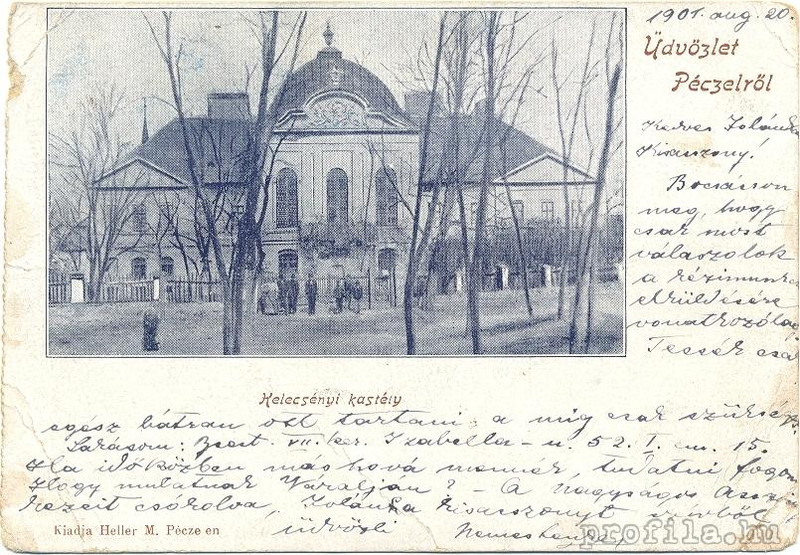 1901. aug. 20.
Üdvözlet
Péczelről
Kedves Jolánka
Kisaszony!
Bocsásson
meg, hogy
csak most
válaszolok
a kézimunka
elküldésére
vonatkozólag
Tessék csa
Kelecsényi kastély
egész bátran ott tartani, a míg csak szükség
Lakásom: Bpest. VII. ker. Izabella-u. 52. I. em. 15.
Ha időközben más hová mennék, tudatni fogom
Hogy mulatnak Váralján? - A nagyságos Asszony
kezeit csókolva, Jolánka kisasszonyt szívből
Kiadja Heller M. Pécze en
üdvözli
profila.hu